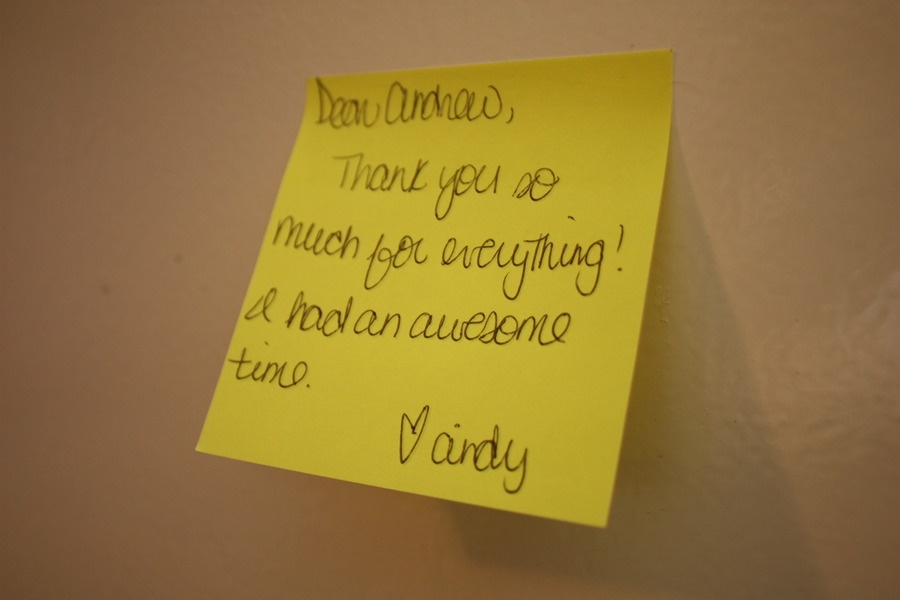 Dear Andrew,
Thank you so
much for everything!
I had an awesome
time.
♡ Cindy